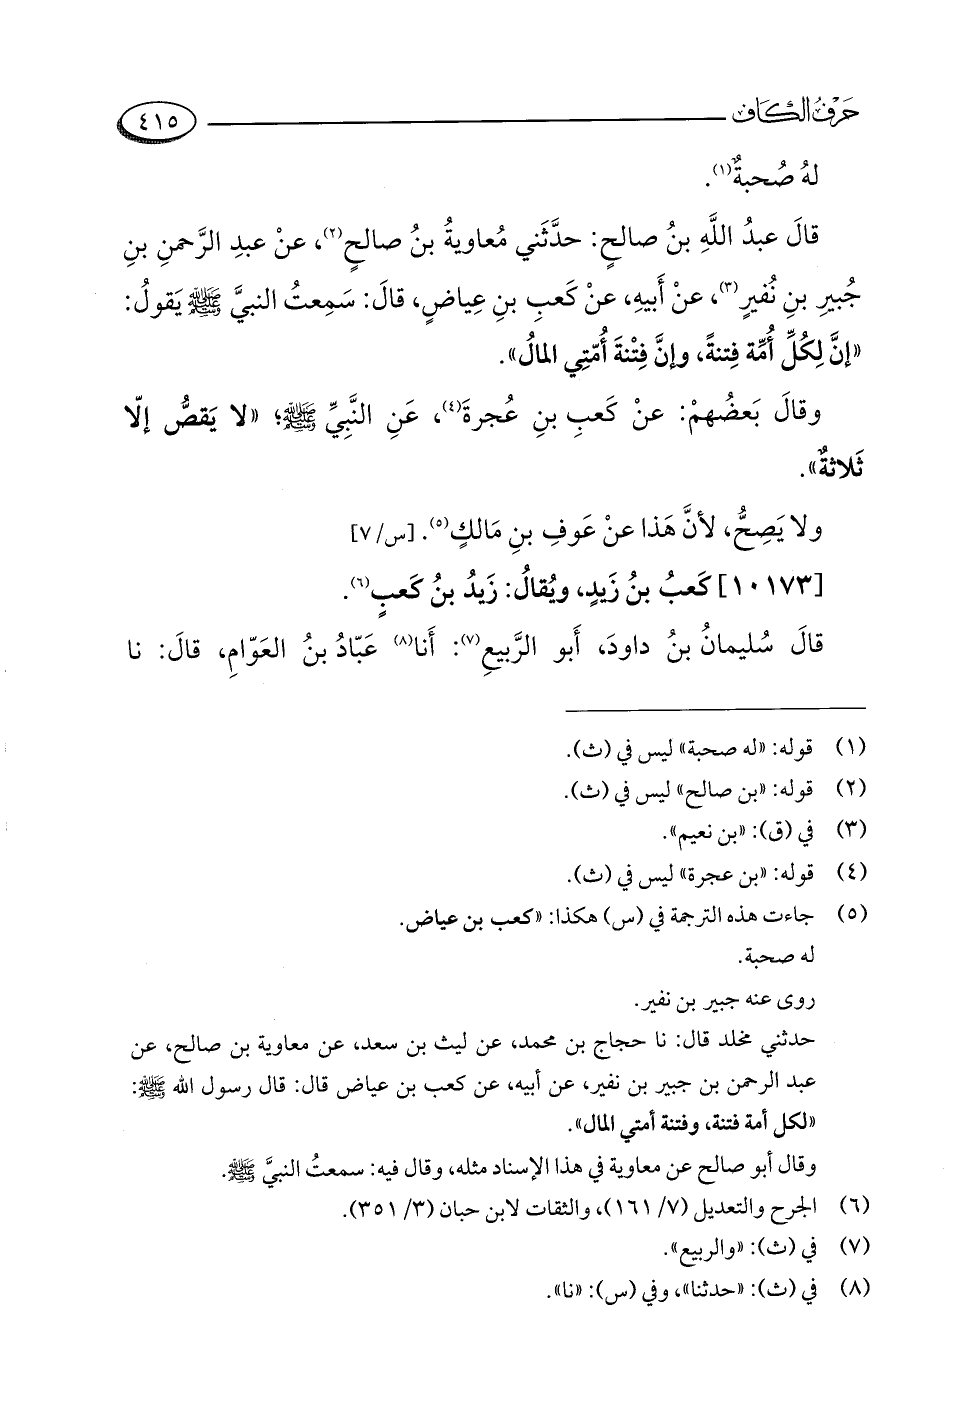 حَرْفُ الكَاف
٤١٥
لهُ صُحبةٌ(١).
قالَ عبدُ اللَّهِ بنُ صالحٍ: حدَّثَني مُعاويةُ بنُ صالحٍ(٢)، عنْ عبدِ الرَّحمنِ بنِ
جُبيرِ بنِ نُفيرٍ(٣)، عنْ أَبيهِ، عنْ كَعبِ بنِ عِياضٍ، قالَ: سَمِعتُ النبيَّ ﷺ يَقولُ:
«إنَّ لِكُلِّ أُمِّة فِتنةً، وإنَّ فِتْنةَ أُمّتِي المالُ».
وقالَ بَعضُهمْ: عنْ كَعبِ بنِ عُجرةَ(٤)، عَنِ النَّبِيِّ ﷺ؛ «لا يَقصُّ إلّا
ثَلاثةٌ».
ولا يَصِحُّ، لأنَّ هَذا عنْ عَوفِ بنِ مَالكٍ(٥). [س/٧]
[١٠١٧٣] كَعبُ بنُ زَيدٍ، ويُقالُ: زَيدُ بنُ كَعبٍ(٦).
قالَ سُليمانُ بنُ داودَ، أَبو الرَّبيعِ(٧): أَنا(٨) عَبّادُ بنُ العَوّامِ، قالَ: نا
(١) قوله: «له صحبة» ليس في (ث).
(٢) قوله: «بن صالح» ليس في (ث).
(٣) في (ق): «بن نعيم».
(٤) قوله: «بن عجرة» ليس في (ث).
(٥) جاءت هذه الترجمة في (س) هكذا: «كعب بن عياض.
له صحبة.
روى عنه جبير بن نفير.
حدثني مخلد قال: نا حجاج بن محمد، عن ليث بن سعد، عن معاوية بن صالح، عن
عبد الرحمن بن جبير بن نفير، عن أبيه، عن كعب بن عياض قال: قال رسول الله ﷺ:
«لكل أمة فتنة، وفتنة أمتي المال».
وقال أبو صالح عن معاوية في هذا الإسناد مثله، وقال فيه: سمعتُ النبيَّ ﷺ.
(٦) الجرح والتعديل (٧/ ١٦١)، والثقات لابن حبان (٣/ ٣٥١).
(٧) في (ث): «والربيع».
(٨) في (ث): «حدثنا»، وفي (س): «نا».